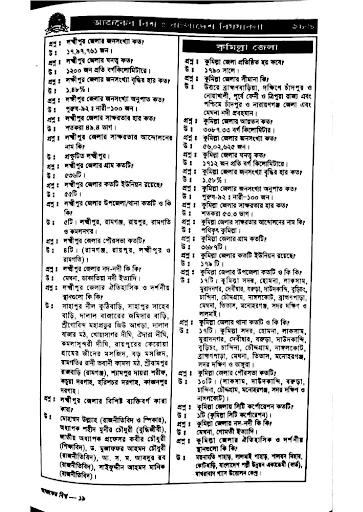 আজকের বিশ্ব ও বাংলাদেশ বিষয়াবলী
প্রশ্ন : লক্ষ্মীপুর জেলার জনসংখ্যা কত?
উ : ১৭,২৯,৭৬১ জন।
প্রশ্ন : লক্ষ্মীপুর জেলার ঘনত্ব কত?
উ : ১২০০ জন প্রতি বর্গকিলোমিটারে।
প্রশ্ন : লক্ষ্মীপুর জেলার জনসংখ্যা বৃদ্ধির হার কত?
উ : ১.৪৮%।
প্রশ্ন : লক্ষ্মীপুর জেলার জনসংখ্যা অনুপাত কত?
উ : পুরুষ-৯২ : নারী-১০০ জন।
প্রশ্ন : লক্ষ্মীপুর জেলার সাক্ষরতার হার কত?
উ : শতকরা ৪৯.৪ ভাগ।
প্রশ্ন : লক্ষ্মীপুর জেলার সাক্ষরতার আন্দোলনের
নাম কি?
উ : প্রস্ফুটিত লক্ষ্মীপুর।
প্রশ্ন : লক্ষ্মীপুর জেলার গ্রাম কতটি?
উ : ৫৩৬টি।
প্রশ্ন : লক্ষ্মীপুর জেলার কতটি ইউনিয়ন রয়েছে?
উ : ৫৫টি।
প্রশ্ন : লক্ষ্মীপুর জেলার উপজেলা/থানা কতটি ও কি
কি?
উ : ৫টি। লক্ষ্মীপুর, রামগঞ্জ, রায়পুর, রামগতি
ও কমলনগর।
প্রশ্ন : লক্ষ্মীপুর জেলার পৌরসভা কতটি?
উ : ৪টি (রামগঞ্জ, রায়পুর, লক্ষ্মীপুর ও
রামগতি)।
প্রশ্ন : লক্ষ্মীপুর জেলার নদ-নদী কি কি?
উ : মেঘনা, ডাকাতিয়া নদী ইত্যাদি।
প্রশ্ন : লক্ষ্মীপুর জেলার ঐতিহাসিক ও দর্শনীয়
স্থানগুলো কি কি?
উ : সাহাপুর নীল কুঠিবাড়ি, সাহাপুর সাহেব
বাড়ি, দালাল বাজারের জমিদার বাড়ি,
বাজার মঠ, খোয়াসাগর দীঘি,
কমলাসুন্দরী দীঘি, রায়পুরের কেরোয়া
গ্রামের জীনের মসজিদ, বড় মসজিদ,
রামগতির রানী ভবানী কামদা মঠ, শ্রীরামপুর
রাজবাড়ি (রামগঞ্জ), শ্যামপুর দায়রা শরীফ,
কচুয়া দরগাহ, হরিশ্চর দরগাহ, কাঞ্চনপুর
দরগাহ।
প্রশ্ন : লক্ষ্মীপুর জেলার বিশিষ্ট ব্যক্তিবর্গ কারা
কারা?
উ : মোহাম্মদ উল্লাহ (রাজনীতিবিদ ও স্পিকার),
অধ্যাপক শহীদ মুনীর চৌধুরী (বুদ্ধিজীবী),
জাতীয় অধ্যাপক প্রফেসর কবীর চৌধুরী
(শিক্ষাবিদ), ড. মুজাফফর আহমদ চৌধুরী
(রাজনীতিবিদ), আ. স. ম. আবদুর রব
(রাজনীতিবিদ), সাইফুদ্দীন আহমদ মানিক
(রাজনীতিবিদ)।
আজকের বিশ্ব — ১৯
কুমিল্লা জেলা
প্রশ্ন : কুমিল্লা জেলা প্রতিষ্ঠিত হয় কবে?
উ : ১৭৯০ সালে।
প্রশ্ন : কুমিল্লা জেলার সীমানা কি?
উ : উত্তরে ব্রাহ্মণবাড়িয়া, দক্ষিণে চাঁদপুর ও
নোয়াখালী, পূর্বে ফেনী ও ত্রিপুরা রাজ্য এবং
পশ্চিমে চাঁদপুর ও নারায়ণগঞ্জ জেলা এবং
মেঘনা নদী প্রবহমান।
প্রশ্ন : কুমিল্লা জেলার আয়তন কত?
উ : ৩০৮৭.৩৩ বর্গ কিলোমিটার।
প্রশ্ন : কুমিল্লা জেলার জনসংখ্যা কত?
উ : ৫৬,০২,৬২৫ জন।
প্রশ্ন : কুমিল্লা জেলার ঘনত্ব কত?
উ : ১৭১২ জন প্রতি বর্গ কিলোমিটারে।
প্রশ্ন : কুমিল্লা জেলার জনসংখ্যা বৃদ্ধির হার কত?
উ : ১.৫৮%।
প্রশ্ন : কুমিল্লা জেলার জনসংখ্যা অনুপাত কত?
উ : পুরুষ-৯২ : নারী-১০০ জন।
প্রশ্ন : কুমিল্লা জেলার সাক্ষরতার হার কত?
উ : শতকরা ৫৩.৩ ভাগ।
প্রশ্ন : কুমিল্লা জেলার সাক্ষরতার আন্দোলনের নাম কি?
উ : পথিকৃৎ কুমিল্লা।
প্রশ্ন : কুমিল্লা জেলার গ্রাম কতটি?
উ : ৩৬৮৭টি।
প্রশ্ন : কুমিল্লা জেলার কতটি ইউনিয়ন রয়েছে?
উ : ১৭৯ টি।
প্রশ্ন : কুমিল্লা জেলার উপজেলা কতটি ও কি কি?
উ : ১৭টি। কুমিল্লা সদর, হোমনা, লাকসাম,
মুরাদনগর, দেবীদ্বার, বরুড়া, দাউদকান্দি, বুড়িচং,
চান্দিনা, চৌদ্দগ্রাম, নাঙ্গলকোট, ব্রাহ্মণপাড়া,
মেঘনা, তিতাস, মনোহরগঞ্জ, সদর দক্ষিণ ও
লালমাই।
প্রশ্ন : কুমিল্লা জেলার থানা কতটি ও কি কি?
উ : ১৭টি। কুমিল্লা সদর, হোমনা, লাকসাম,
মুরাদনগর, দেবীদ্বার, বরুড়া, দাউদকান্দি,
বুড়িচং, চান্দিনা, চৌদ্দগ্রাম, নাঙ্গলকোট,
ব্রাহ্মণপাড়া, মেঘনা, তিতাস, মনোহরগঞ্জ,
সদর দক্ষিণ ও ভাঙ্গুরা।
প্রশ্ন : কুমিল্লা জেলার পৌরসভা কতটি?
উ : ১০টি। (লাকসাম, দাউদকান্দি, বরুড়া,
চান্দিনা, চৌদ্দগ্রাম, হোমনা, সদর দক্ষিণ ও
নাঙ্গলকোট)।
প্রশ্ন : কুমিল্লা জেলার সিটি কর্পোরেশন কতটি?
উ : ১টি (কুমিল্লা সিটি কর্পোরেশন)।
প্রশ্ন : কুমিল্লা জেলার নদ-নদী কি কি?
উ : মেঘনা, গোমতী ইত্যাদি।
প্রশ্ন : কুমিল্লা জেলার ঐতিহাসিক ও দর্শনীয়
স্থানগুলো কি কি?
উ : ময়নামতি পাহাড়, লালমাই পাহাড়, শালবন বিহার,
কোটবাড়ি, বাংলাদেশ পল্লী উন্নয়ন একাডেমী (বার্ড),